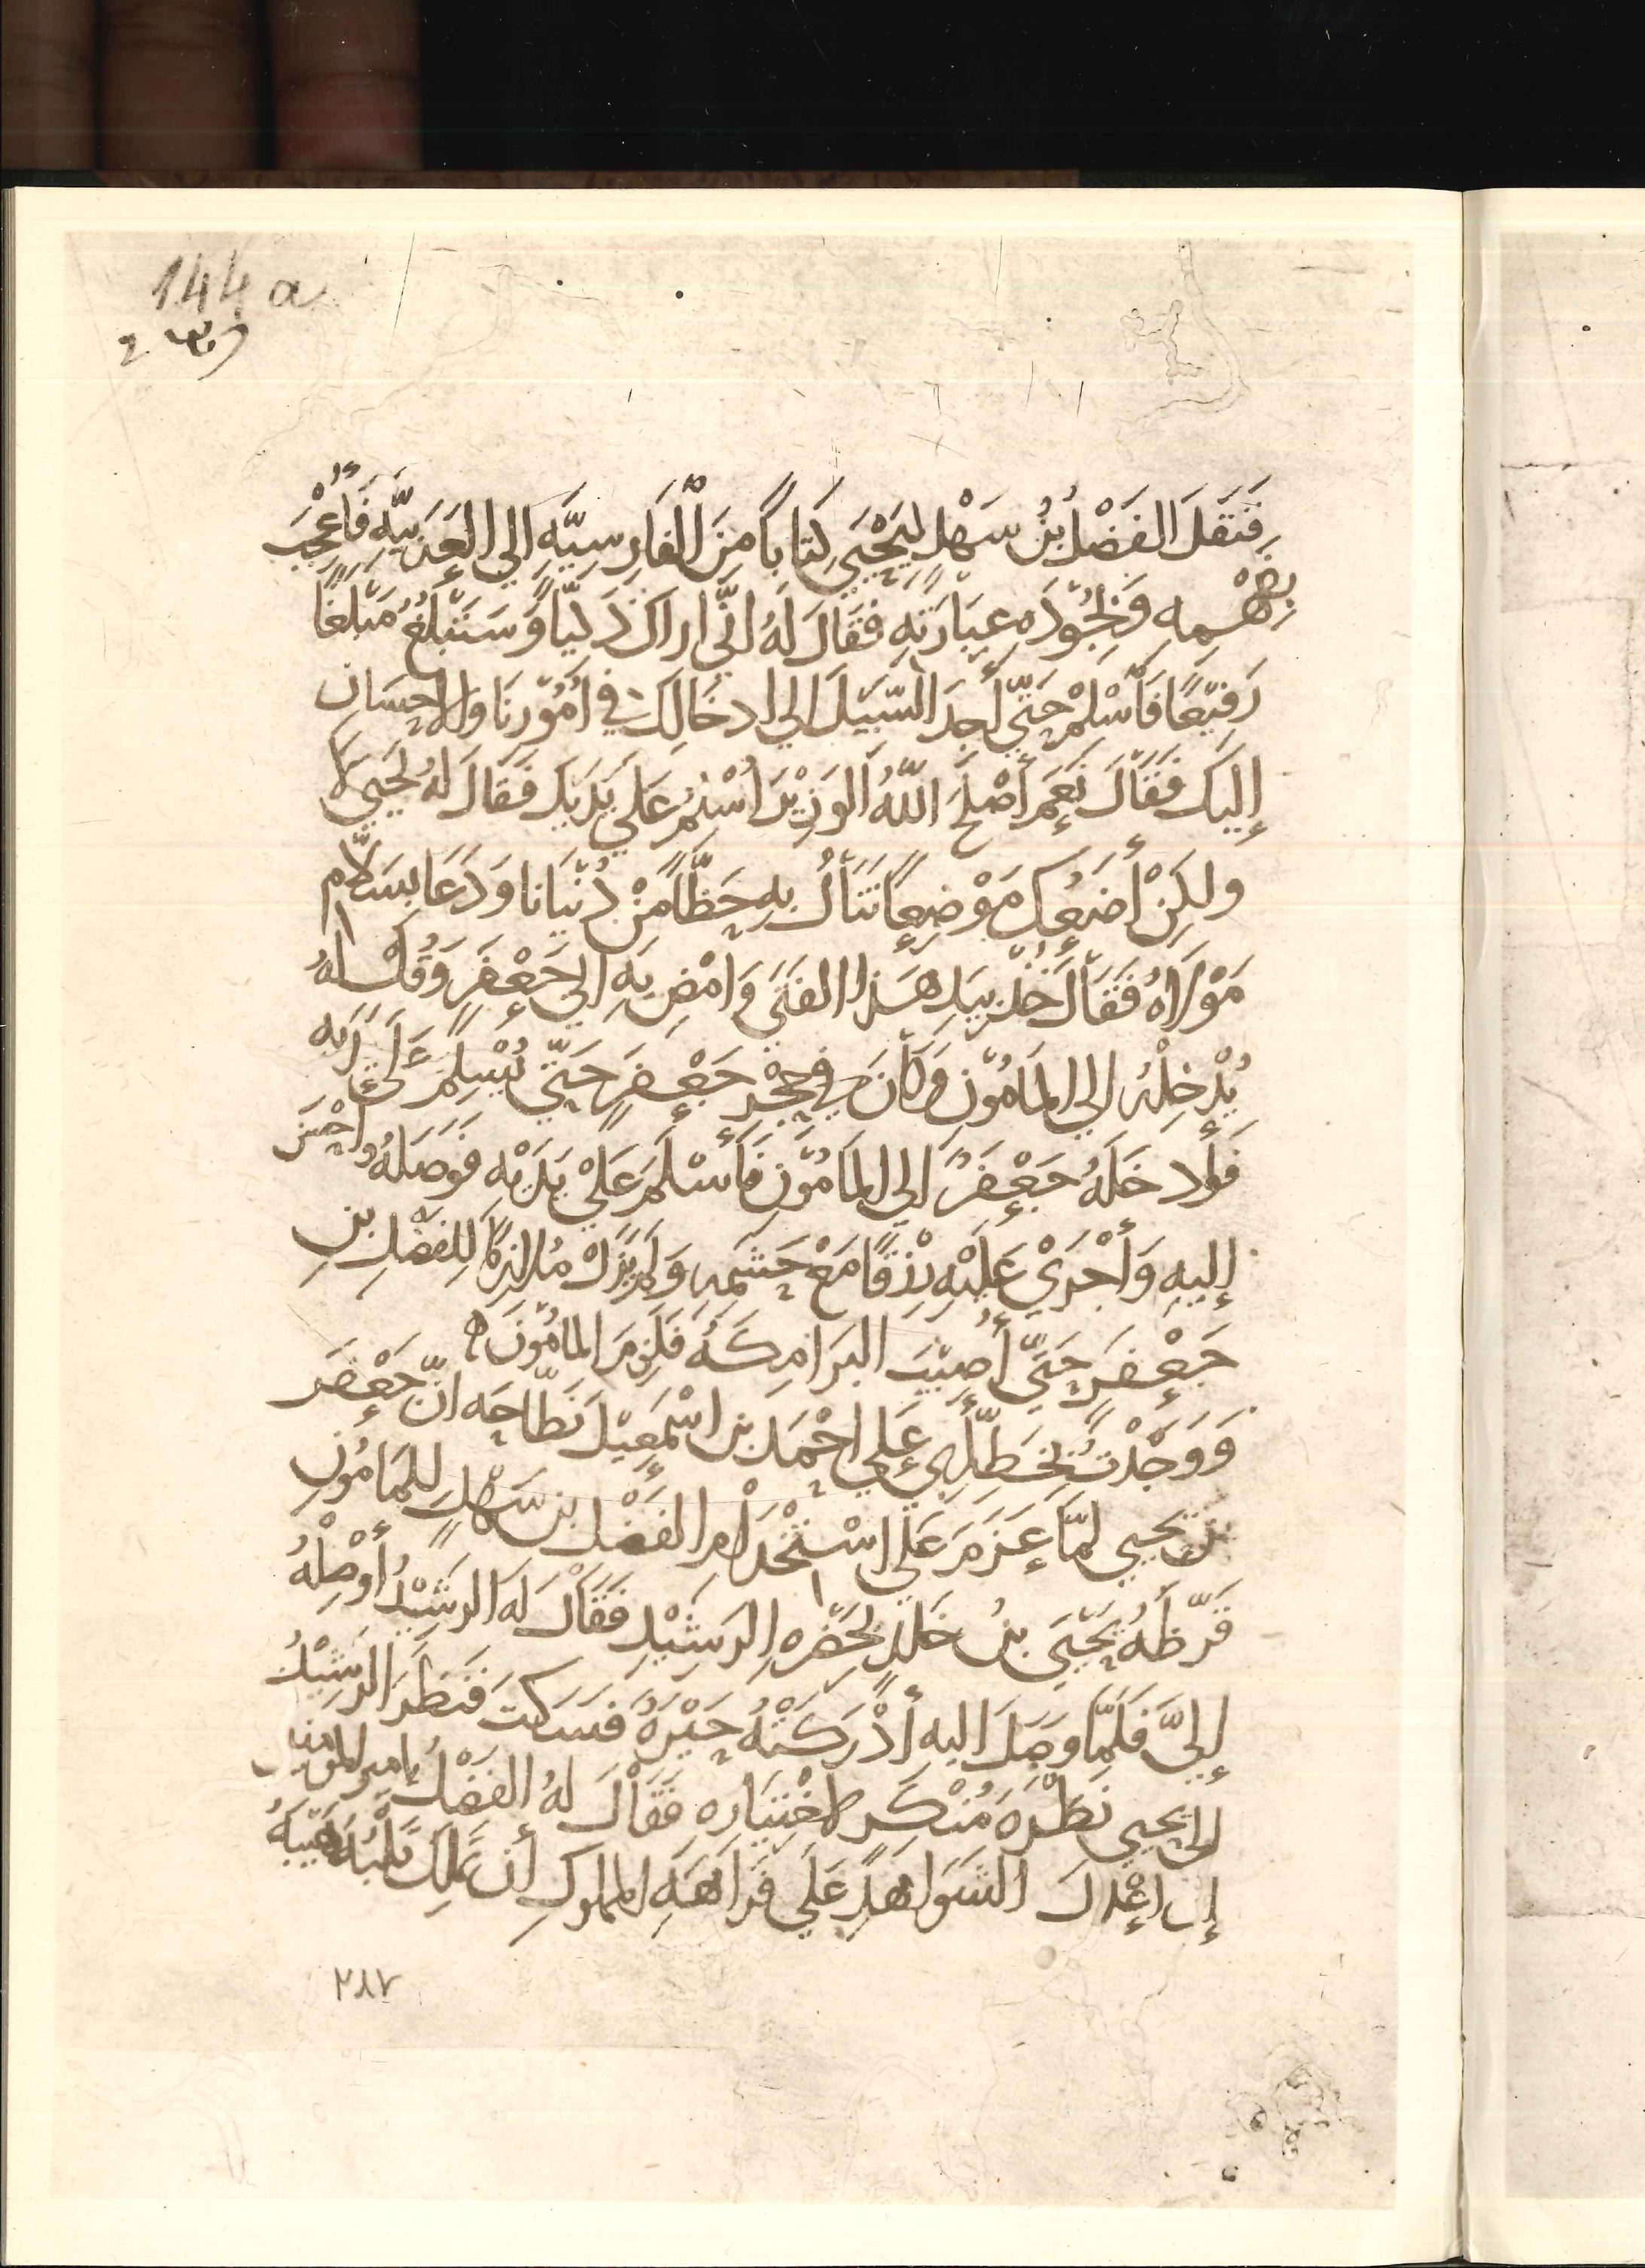 144 a
فَنَقَلَ الفَضْلُ بْنُ سَهْلٍ لِيَحْيَى كِتَابًا مِنَ الْفَارِسِيَّهِ إلى العَرَبِيَّهِ فَأُعْجِبَ
بِفَهْمِهِ وَبِجُوْدَهِ عِبَارَتِهِ فَقَالَ لَهُ انِّي اراكَ ذَكِيًّا وَسَتَبْلُغُ مَبْلَغًا
رَفِيْعًا فَأَسْلِمْ حَتَّى أَجِدَ السَّبِيْلَ الى ادخَالِكَ في اُمُوْرِنَا وَالاحِسَانِ
إليك فَقَالَ نَعَمْ أَصْلَحَ اللّٰهُ الوَزِيْرَ اُسْلِمُ عَلى يَدَيكَ فَقَالَ لَهُ يَحْيَى لا
ولكِنْ أَضَعُكَ مَوْضِعًا تَنَالُ بِهِ حَظًّا مِنْ دُنْيَانا وَدَعَا بِسَلَّام
مَوْلاهُ فَقَالَ خُذْ بِيَدِ هَذا الفَتَى وَامْضِ بِهِ إلى جَعْفَرٍ وَقُلْ لَهُ
يُدْخِلْهُ الى المَامُوْنِ وَكَانَ فِي حِجْرِ جَعْفَرٍ حَتَّى يُسْلِمَ عَلَى يَدَيهِ
فَأدخَلَهُ جَعْفَرٌ الى المَامُوْنِ فَأَسْلَمَ عَلَى يَدَيْهِ فَوَصَلَهُ وَاحْسَنَ
إليهِ وَأَجْرَى عَلَيْهِ رِزْقًا مَعْ حَشَمِهِ وَلَمْ يَزَلْ مُلازِمًا لِلفَضْلِ بنِ
جَعْفَرٍ حَتَّى أُصِيْبَ البَرَامِكَهُ فَلَزِمَ المَامُوْنَ
وَوَجَدْتُ بِخَطِّ أَبِي عَلي احْمَد بن اسْمَعِيْلَ نَطَّاحَه انَّ جَعْفَر
بن يحيى لمَّا عَزَمَ عَلَى اسْتِخْدَامِ الفَضْلِ بن سَهْلٍ لِلمَامُونِ
قَرَّظَهُ يَحْيَى بنُ خَالِدٍ بِحَضْرَهِ الرَشِيْدِ فَقَالَ لَهُ الرَشِيْدُ أَوْصِلْهُ
إلَيَّ فَلَمَّا وَصَلَ اليه أَدْرَكَتْهُ حَيْرَهٌ فَسَكَتَ فَنَظَرَ الرَشِيْدُ
إلى يحيى نَظْرَهَ مُنْكِرٍ لاخْتِيَاره فَقَالَ لهُ الفَضْلُ يا امير المومنين
إن اعْدَلَ الشَوَاهِدِ عَلَى فَرَاهَهِ المملوكِ أن تَمْلِكَ قَلْبَهُ هَيْبَهُ
٢٨٧